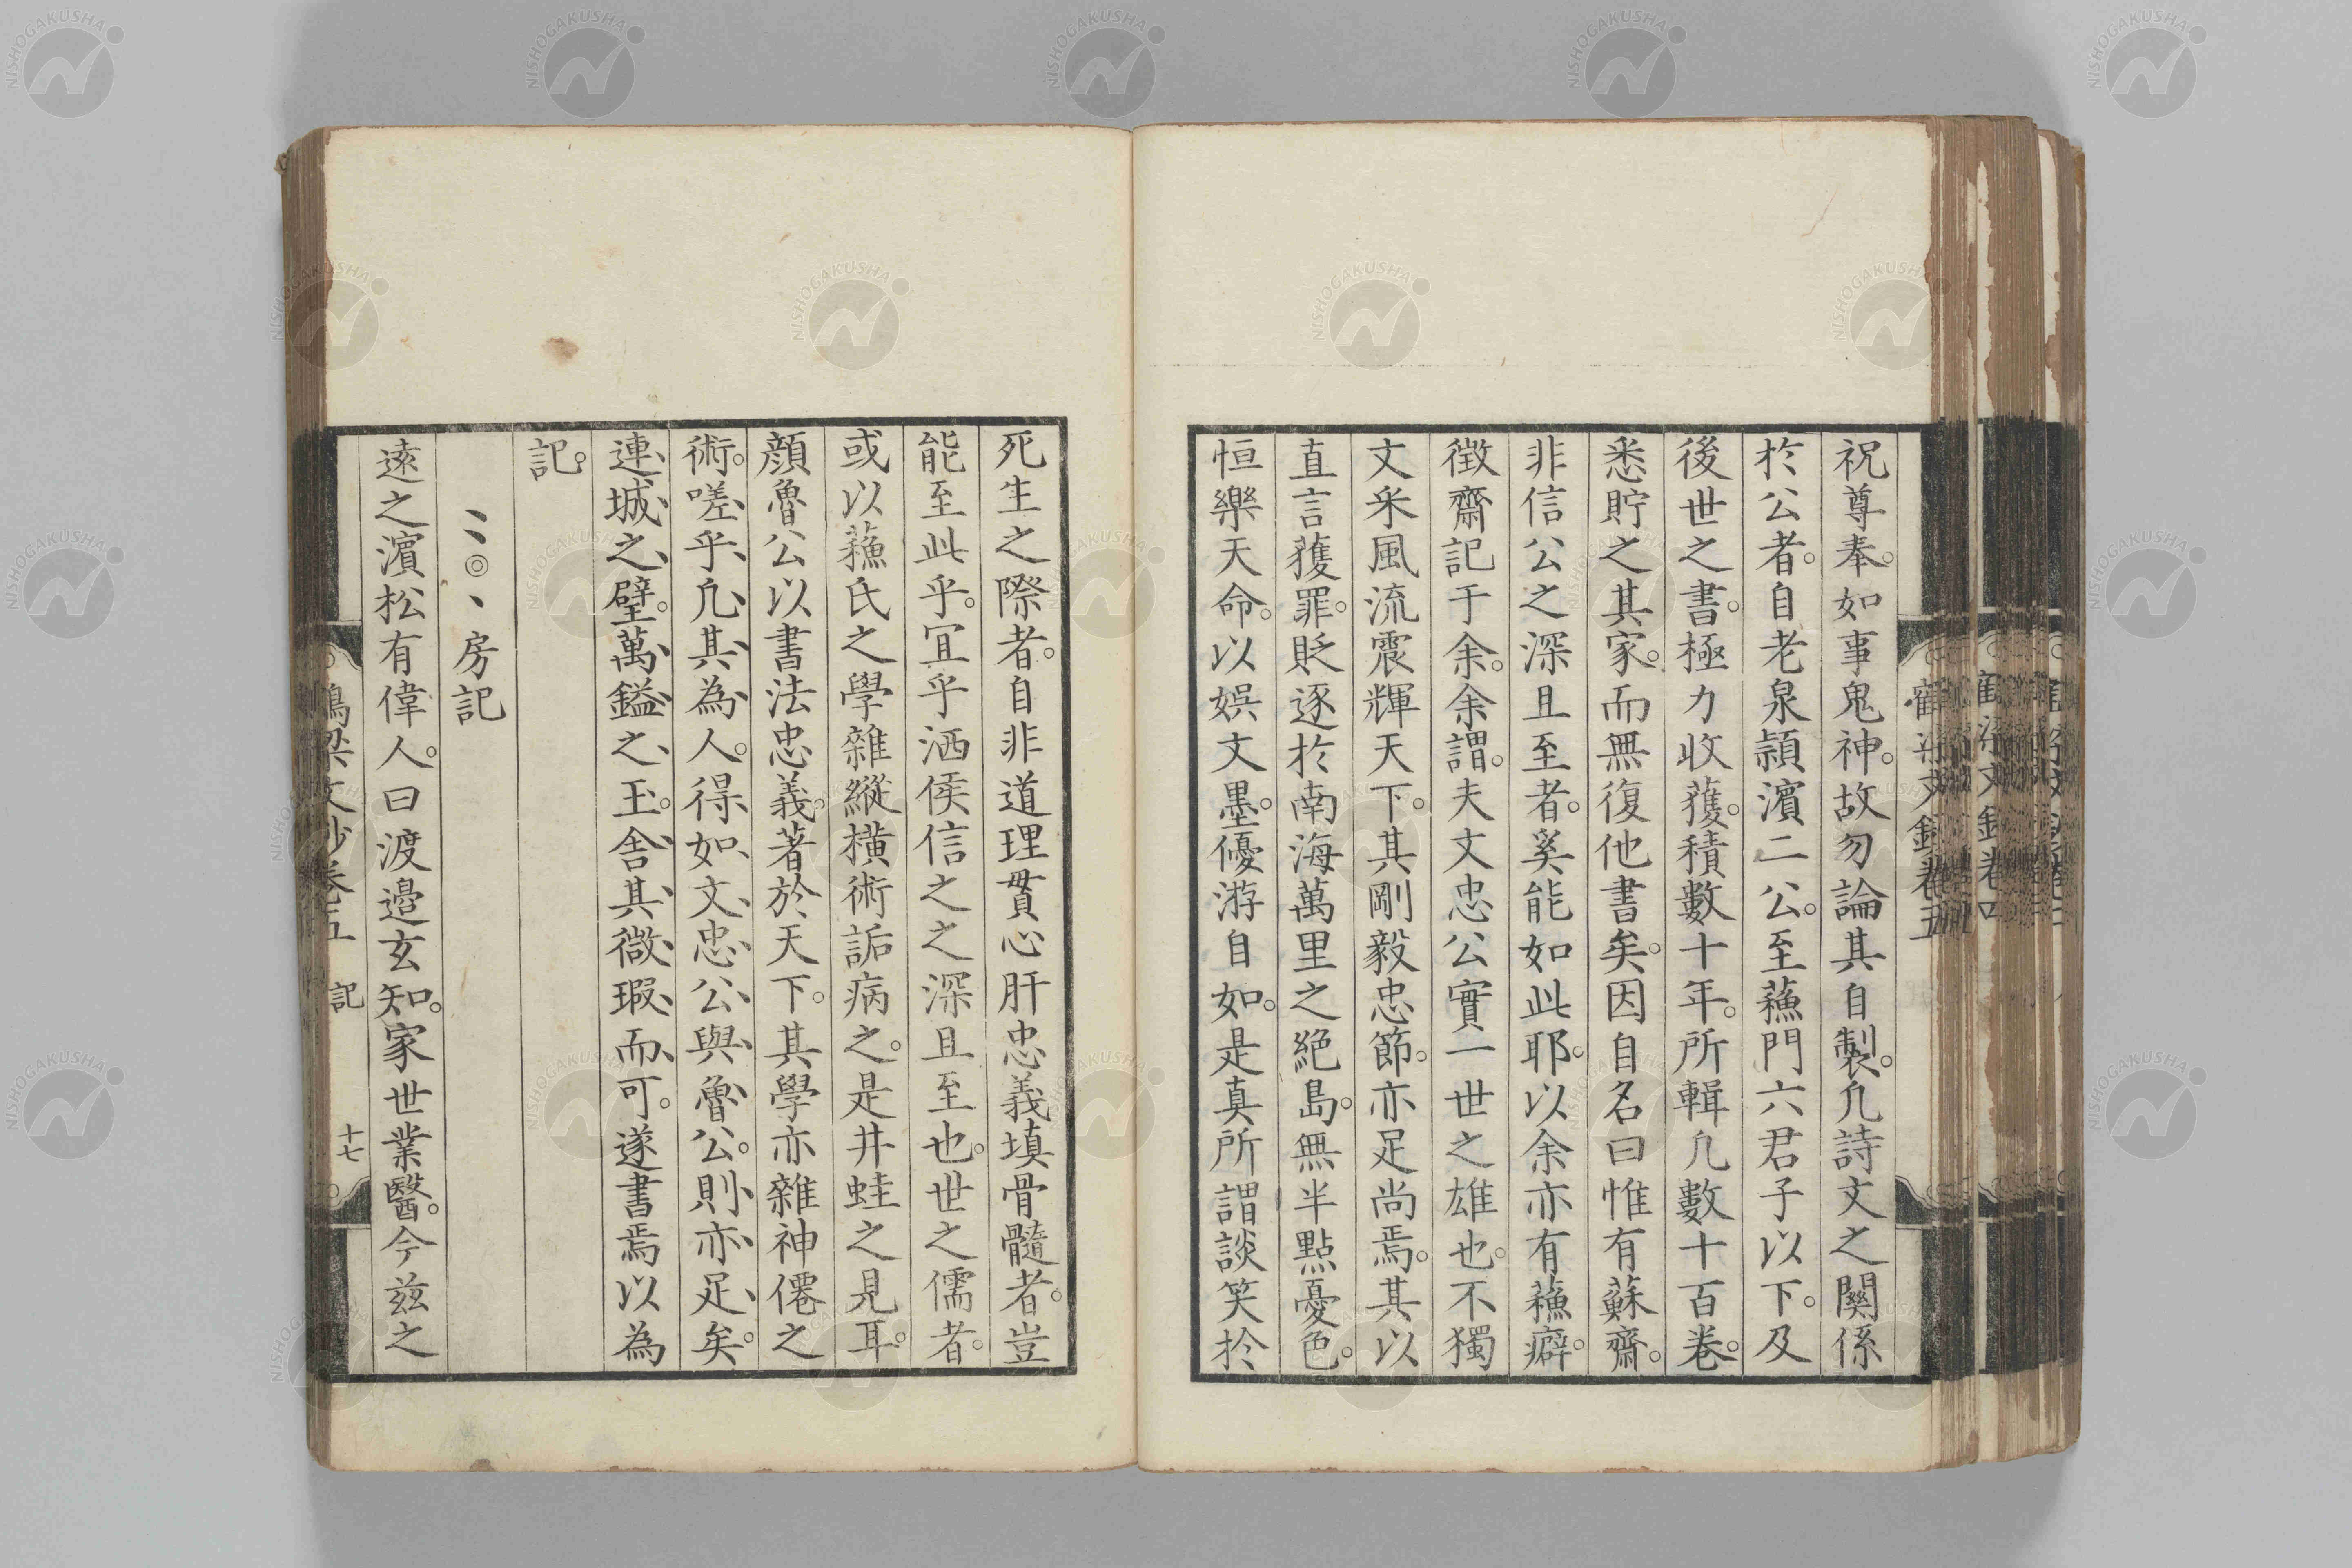 祝尊奉。如事鬼神。故勿論其自製。凡詩文之關係
於公者。自老泉頴濱二公。至蘓門六君子以下。及
後世之書。極力收獲。積數十年。所輯凡數十百卷。
悉貯之其家。而無復他書矣。因自名曰惟有蘇齋。
非信公之深且至者。奚能如此耶。以余亦有蘓癖。
徴齋記于余。余謂。夫文忠公實一世之雄也。不獨
文采風流震輝天下。其剛毅忠節。亦足尚焉。其以
直言獲罪。貶逐於南海萬里之絕島。無半點憂色。
恒樂天命。以娯文墨。優游自如。是真所謂談笑於
死生之際者。自非道理貫心肝忠義塡骨髓者。豈
能至此乎。宜乎洒侯信之之深且至也。世之儒者。
或以蘓氏之學雜縱橫術詬病之。是井蛙之見耳。
顏魯公以書法忠義。著於天下。其學亦雜神僊之
術。嗟乎凡其為人。得如文忠公與魯公。則亦足矣。
連城之璧。萬鎰之玉。舍其微瑕而可。遂書焉以為
記。
〻◎、房記
遠之濱松有偉人。曰渡邉玄知。家世業醫。今茲之
鶴梁文鈔卷五 記 十七